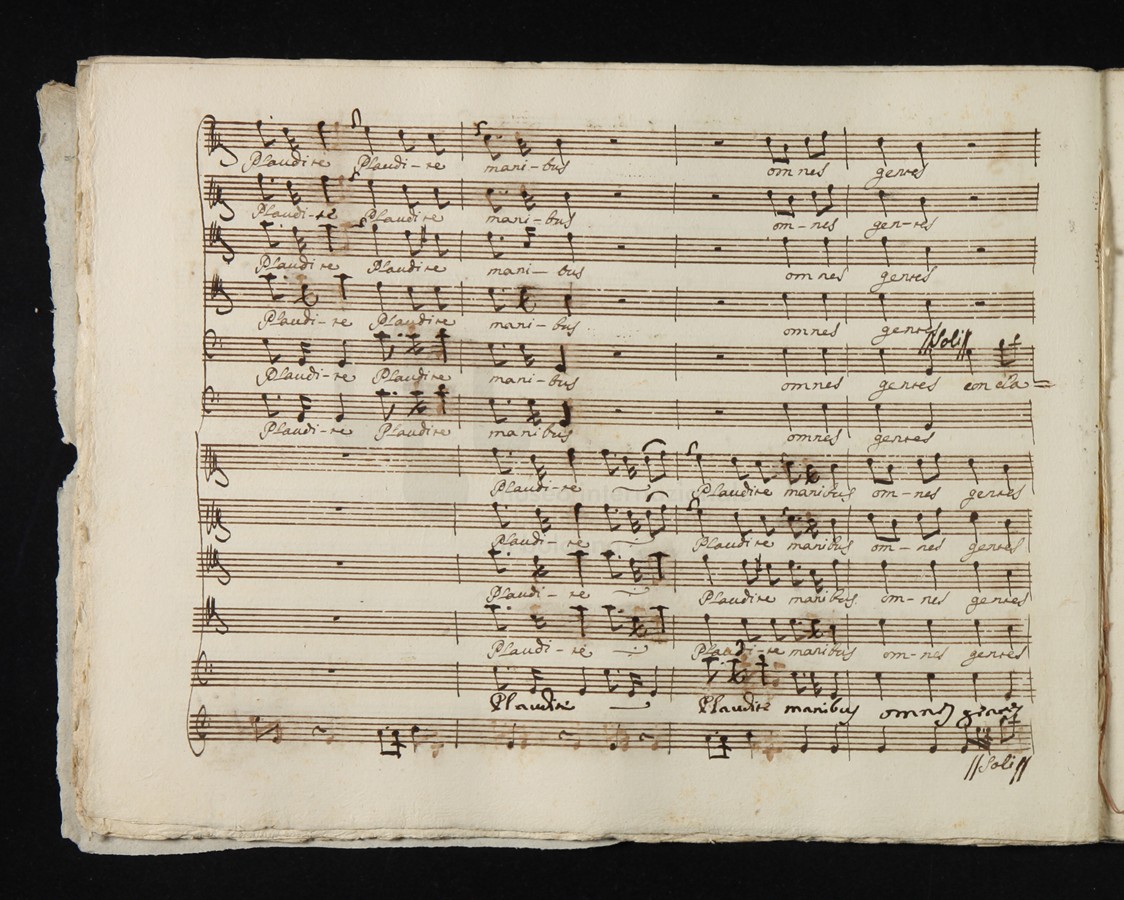 Plaudite Plaudi-te mani-bus omnes gentes
Plaudi-te Plaudite mani-bus om-nes gen-tes
Plaudite Plaudite mani-bus omnes gentes
Plaudi-te Plaudite mani-bus omnes gentes
Soli
Plaudi-te Plaudite mani-bus omnes gentes
Plaudi-te Plaudite manibus omnes gentes
Plaudi-te Plaudite manibus om-nes gentes
Plaudi-te Plaudite manibus om-nes gentes
Plaudi-te Plaudite manibus om-nes gentes
Plaudi-te Plaudi-te manibus om-nes gentes
Plaudite Plaudite manibus omnes gentes
Soli